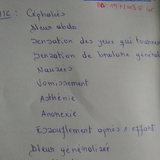 UC : Céphalées
Dleur abdo
Sensation des yeux qui tournent
Sensation de brulure général
Nausées
Vomissement
Asthénie
Anorexie
Essoufflement après effort
Dleur généralisée